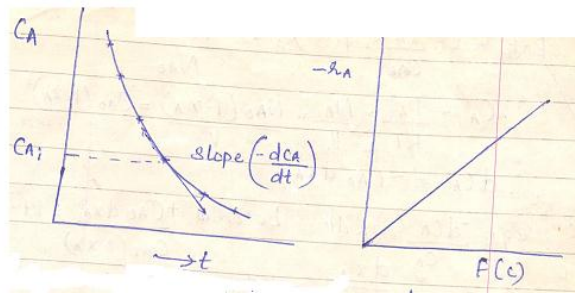 CA
-rA
CAi
slope (-dCA/dt)
→ t
F(c)